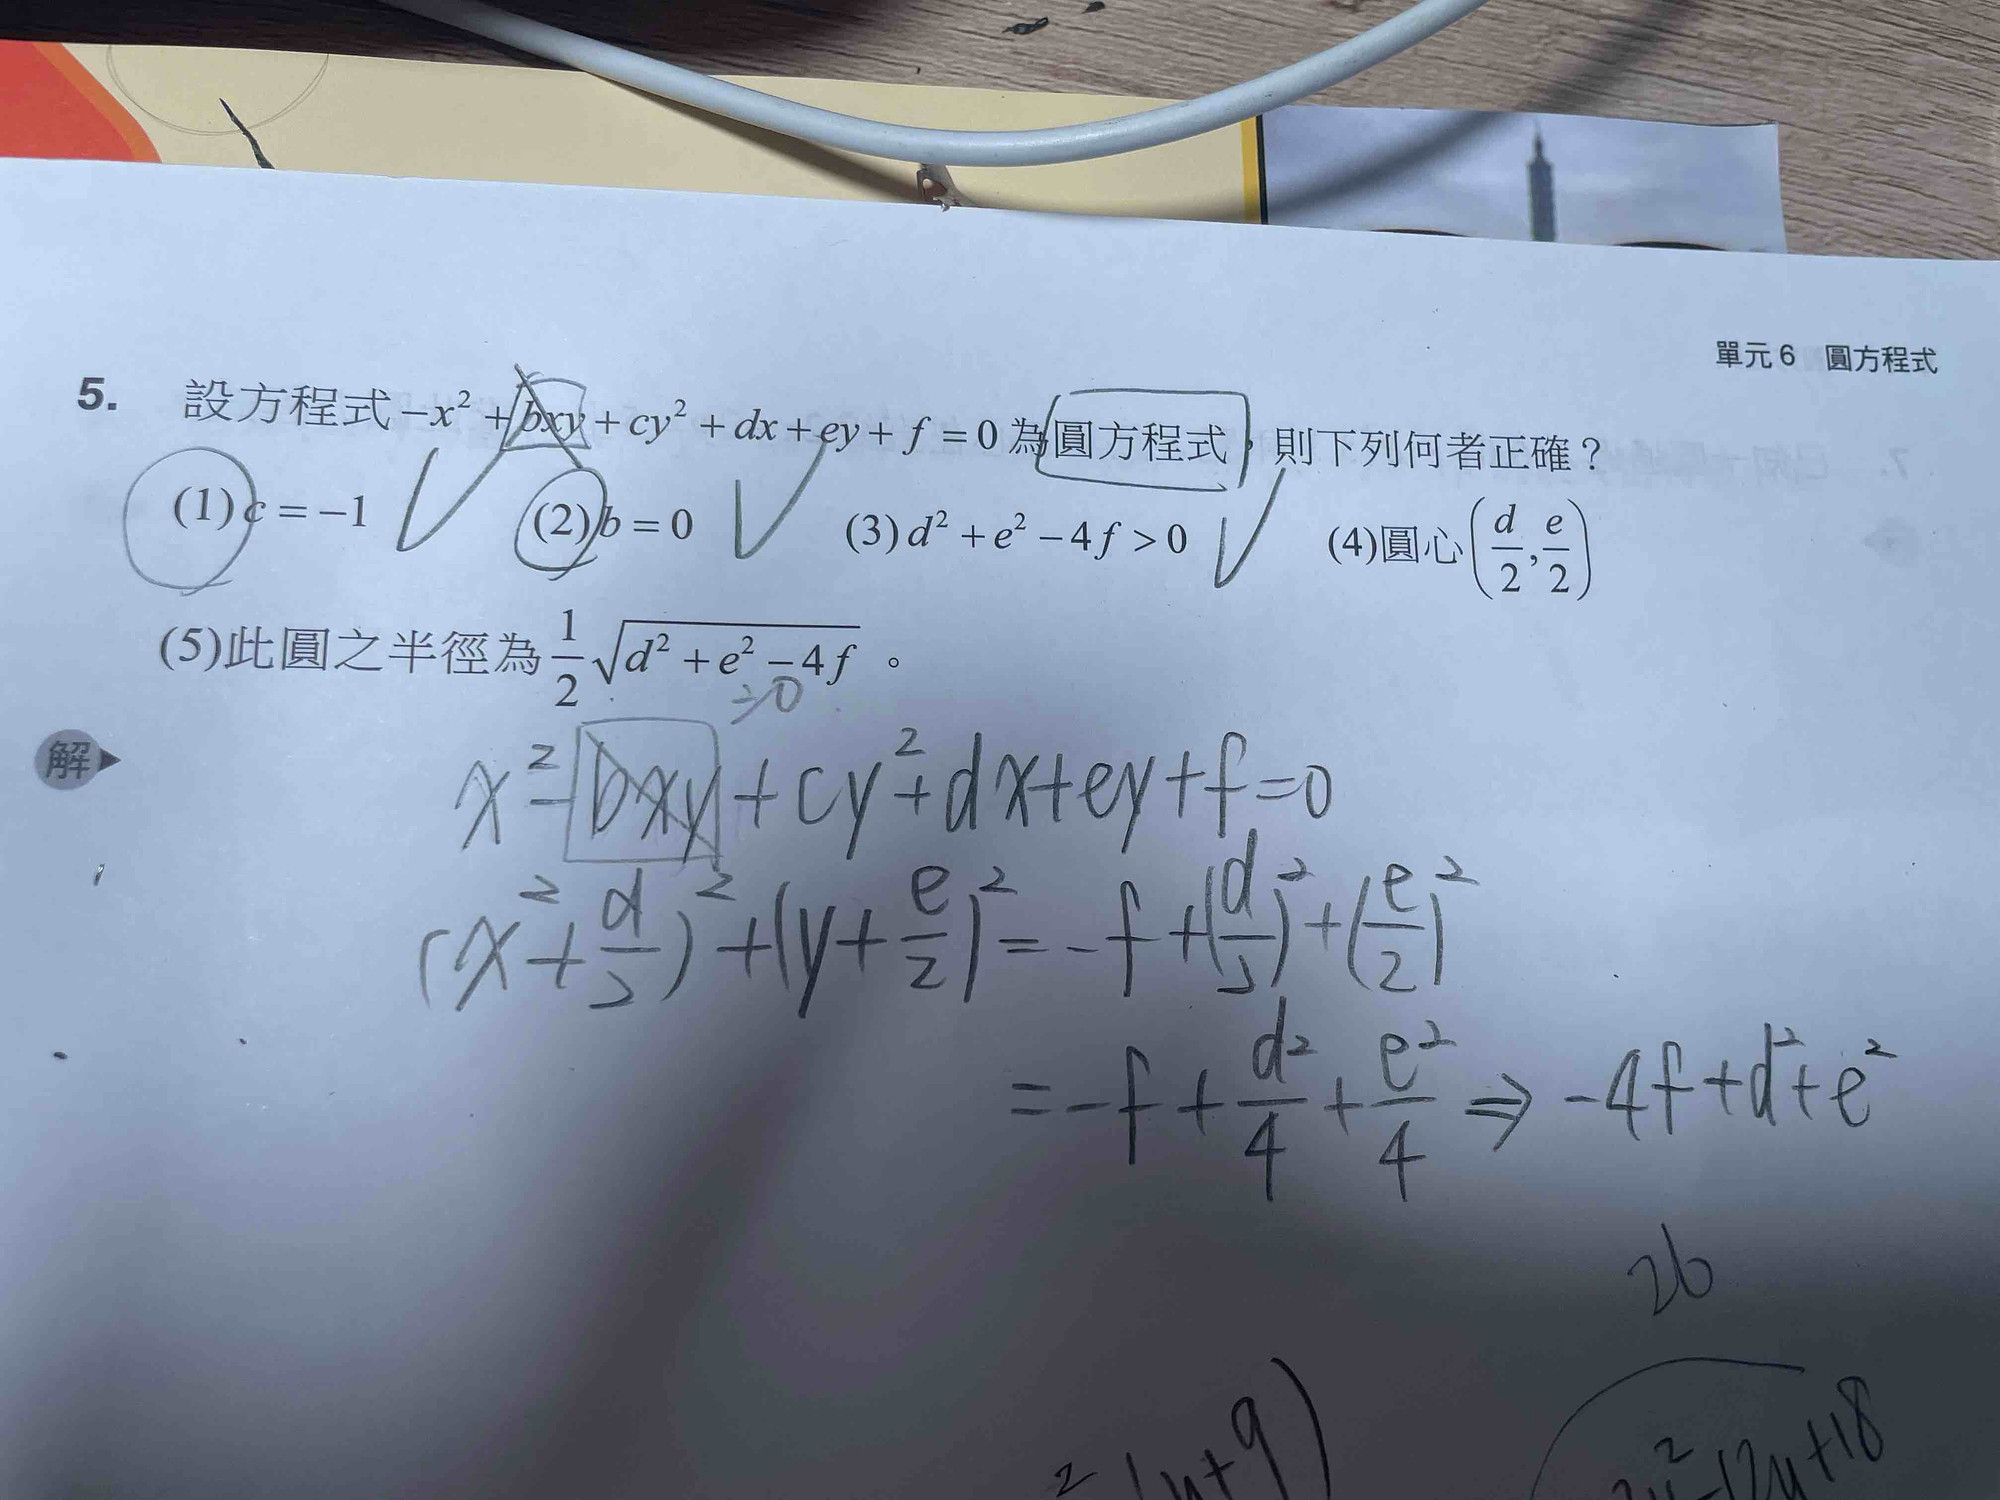 單元6 圓方程式
5. 設方程式 −x² + bxy + cy² + dx + ey + f = 0 為圓方程式,則下列何者正確?
(1) c = −1 (2) b = 0 (3) d² + e² − 4f > 0 (4)圓心(d/2, e/2)
(5)此圓之半徑為 1/2 √(d² + e² − 4f) 。
≥0
解
x² − bxy + cy² + dx + ey + f = 0
(x² + d/2)² + (y + e/2)² = −f + (d/2)² + (e/2)²
= −f + d²/4 + e²/4 ⇒ −4f + d² + e²
26